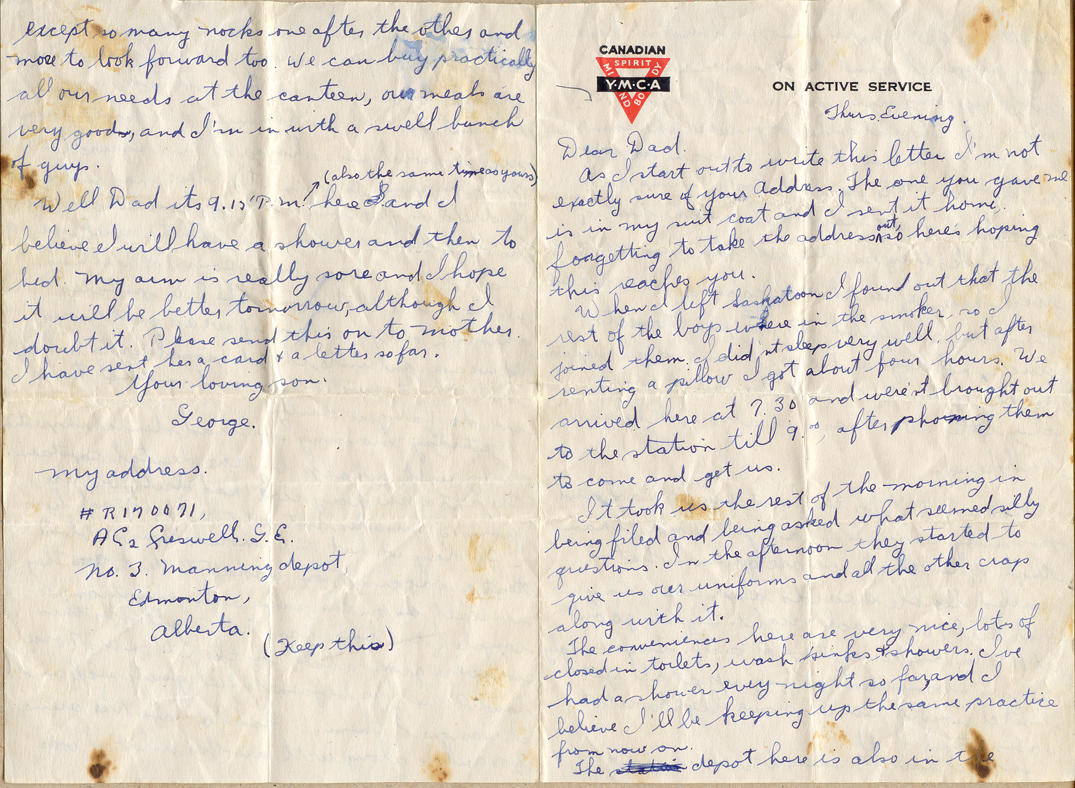 CANADIAN
SPIRIT
MIND
BODY
Y·M·C·A
ON ACTIVE SERVICE
Thurs. Evening.
Dear Dad.
As I start out to write this letter I'm not
exactly sure of your Address. The one you gave me
is in my suit coat and I sent it home.
forgetting to take the address out, so here's hoping
this reaches you.
When I left Saskatoon I found out that the
rest of the boys where in the smoker, so I
joined them. I did'nt sleep very well, but after
renting a pillow I got about four hours. We
arrived here at 7.30 and were'nt brought out
to the station till 9.00, after phoning them
to come and get us.
It took us the rest of the morning in
being filed and being asked what seemed silly
questions. In the afternoon they started to
give us our uniforms and all the other crap
along with it.
The conveniences here are very nice, lots of
closed in toilets, wash sinks & showers. I've
had a shower every night so far, and I
believe I'll be keeping up the same practice
from now on.
The depot here is also in the
except so many nocks one after the other and
more to look forward too. We can buy practically
all our needs at the canteen, our meals are
very good, and I'm in with a swell bunch
of guys.
(also the same time as yours)
Well Dad its 9.15 P.m. here and I
believe I will have a shower and then to
bed. My arm is really sore and I hope
it will be better tomorrow, although I
doubt it. Please send this on to mother.
I have sent her a card & a letter so far.
Your loving son.
George.
My address.
# R170071,
AC2 Greswell. G.E.
No. 3. Manning depot,
Edmonton,
Alberta.
(Keep this)